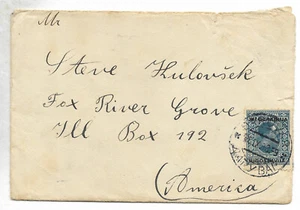 Mr
Steve Kulovšek
Fox River Grove
Ill Box 192
(America